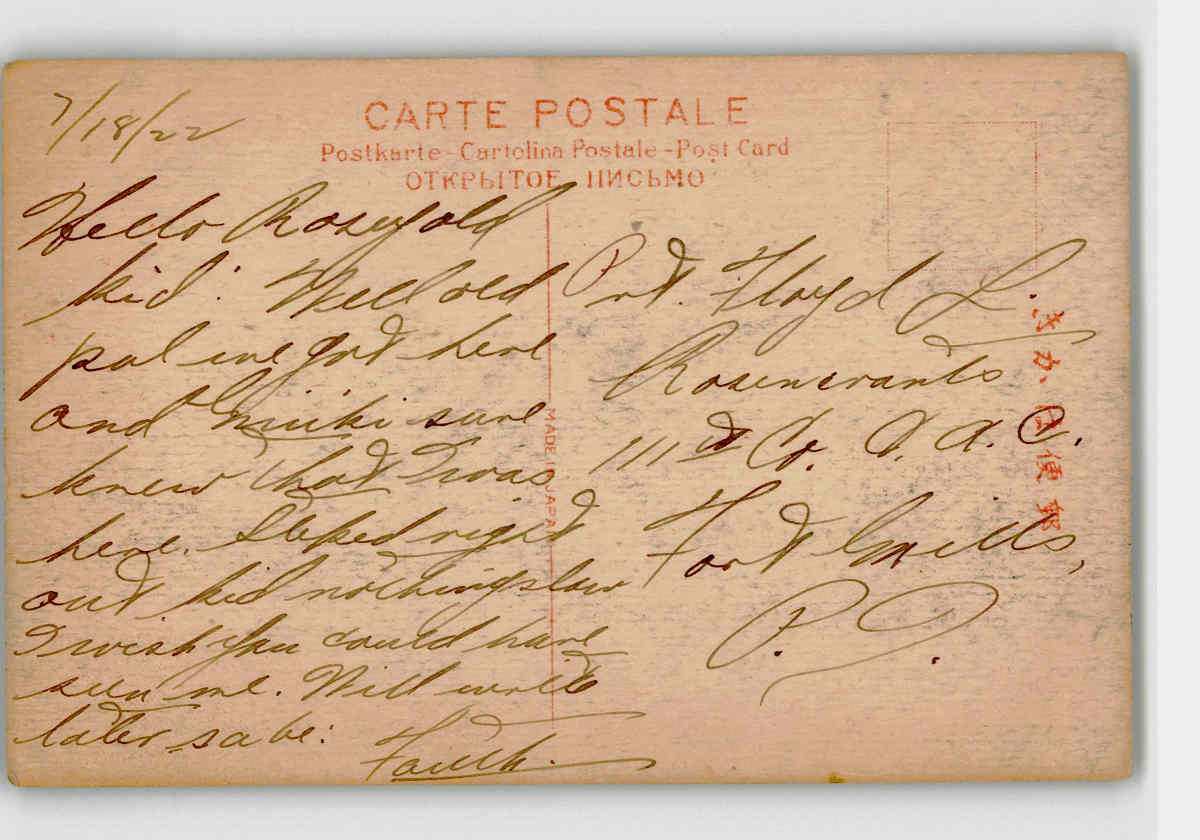 7/18/22
CARTE POSTALE
Postkarte-Cartolina Postale-Post Card
ОТКРЫТОЕ ПИСЬМО
Hello Rosey old
kid. Well old
pal ive got here
and Miiki sure
knew that I was
here. Steped right
out kid nothing slow
I wish you could have
seen me. Will write
later sabe.
Faith.
Pvt. Floyd L.
Rosencrants
111th Co. C.A.C.
Fort Mills,
P.I.
MADE IN JAPAN
きがは便郵